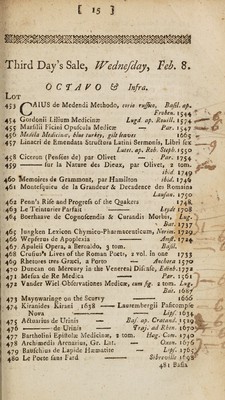 [ 15 ]
Third Day's Sale, Wednesday, Feb. 8.
OCTAVO & Infra.
LOT
453 CAIUS de Medendi Methodo, corio russico, Basil. ap.
Froben. 1544
454 Gordonii Lilium Medicinæ Lugd. ap. Rouill. 1574
455 Marsilii Ficini Opuscula Medicæ Par. 1547
456 Medela Medicinæ, blue turkey, gilt leaves 1665
457 Linacri de Emendata Structura Latini Sermonis, Libri sex
Lutet. ap. Rob. Steph. 1550
458 Ciceron (Pensées de) par Olivet — Par. 1754
459 — sur la Nature des Dieux, par Olivet, 2 tom.
ibid. 1749
460 Memoires de Grammont, par Hamilton ibid. 1746
461 Montesquieu de la Grandeur & Decadence des Romains
Lausan. 1750
462 Penn's Rise and Progress of the Quakers 1748
463 Le Teinturier Parfait Leyd. 1708
464 Boerhaave de Cognoscendis & Curandis Morbis, Lug.
Bat. 1737
465 Jungken Lexicon Chymico-Pharmaceuticum, Norim. 1729
466 Wepferus de Apoplexia Amst. 1724
467 Apuleii Opera, a Beroaldo, 3 tom. Basil.
468 Crusius's Lives of the Roman Poets, 2 vol. in one 1733
469 Rhetores tres Græci, a Porto Aucbora 1570
470 Duncan on Mercury in the Venereal Disease, Edinb. 1772
471 Mesua de Re Medica Par. 1561
472 Vander Wiel Observationes Medicæ, cum fig. 2 tom. Lug.
Bat. 1687
473 Maynwaringe on the Scurvy 1666
474 Kiranides Kirani 1638 — Laurembergii Pasicompse
Nova Lips. 1635
475 Actuarius de Urinis Bas. ap. Cratand. 1529
476 — de Urinis Traj. ad Rhen. 1670
477 Bartholini Epistolæ Medicinæ, 2 tom. Hag. Com. 1740
478 Archimedis Arenarius, Gr. Lat. Oxon. 1676
479 Bauschius de Lapide Hæmatite Lips. 1665
480 Le Poete sans Fard Libreville 1698
481 Basia